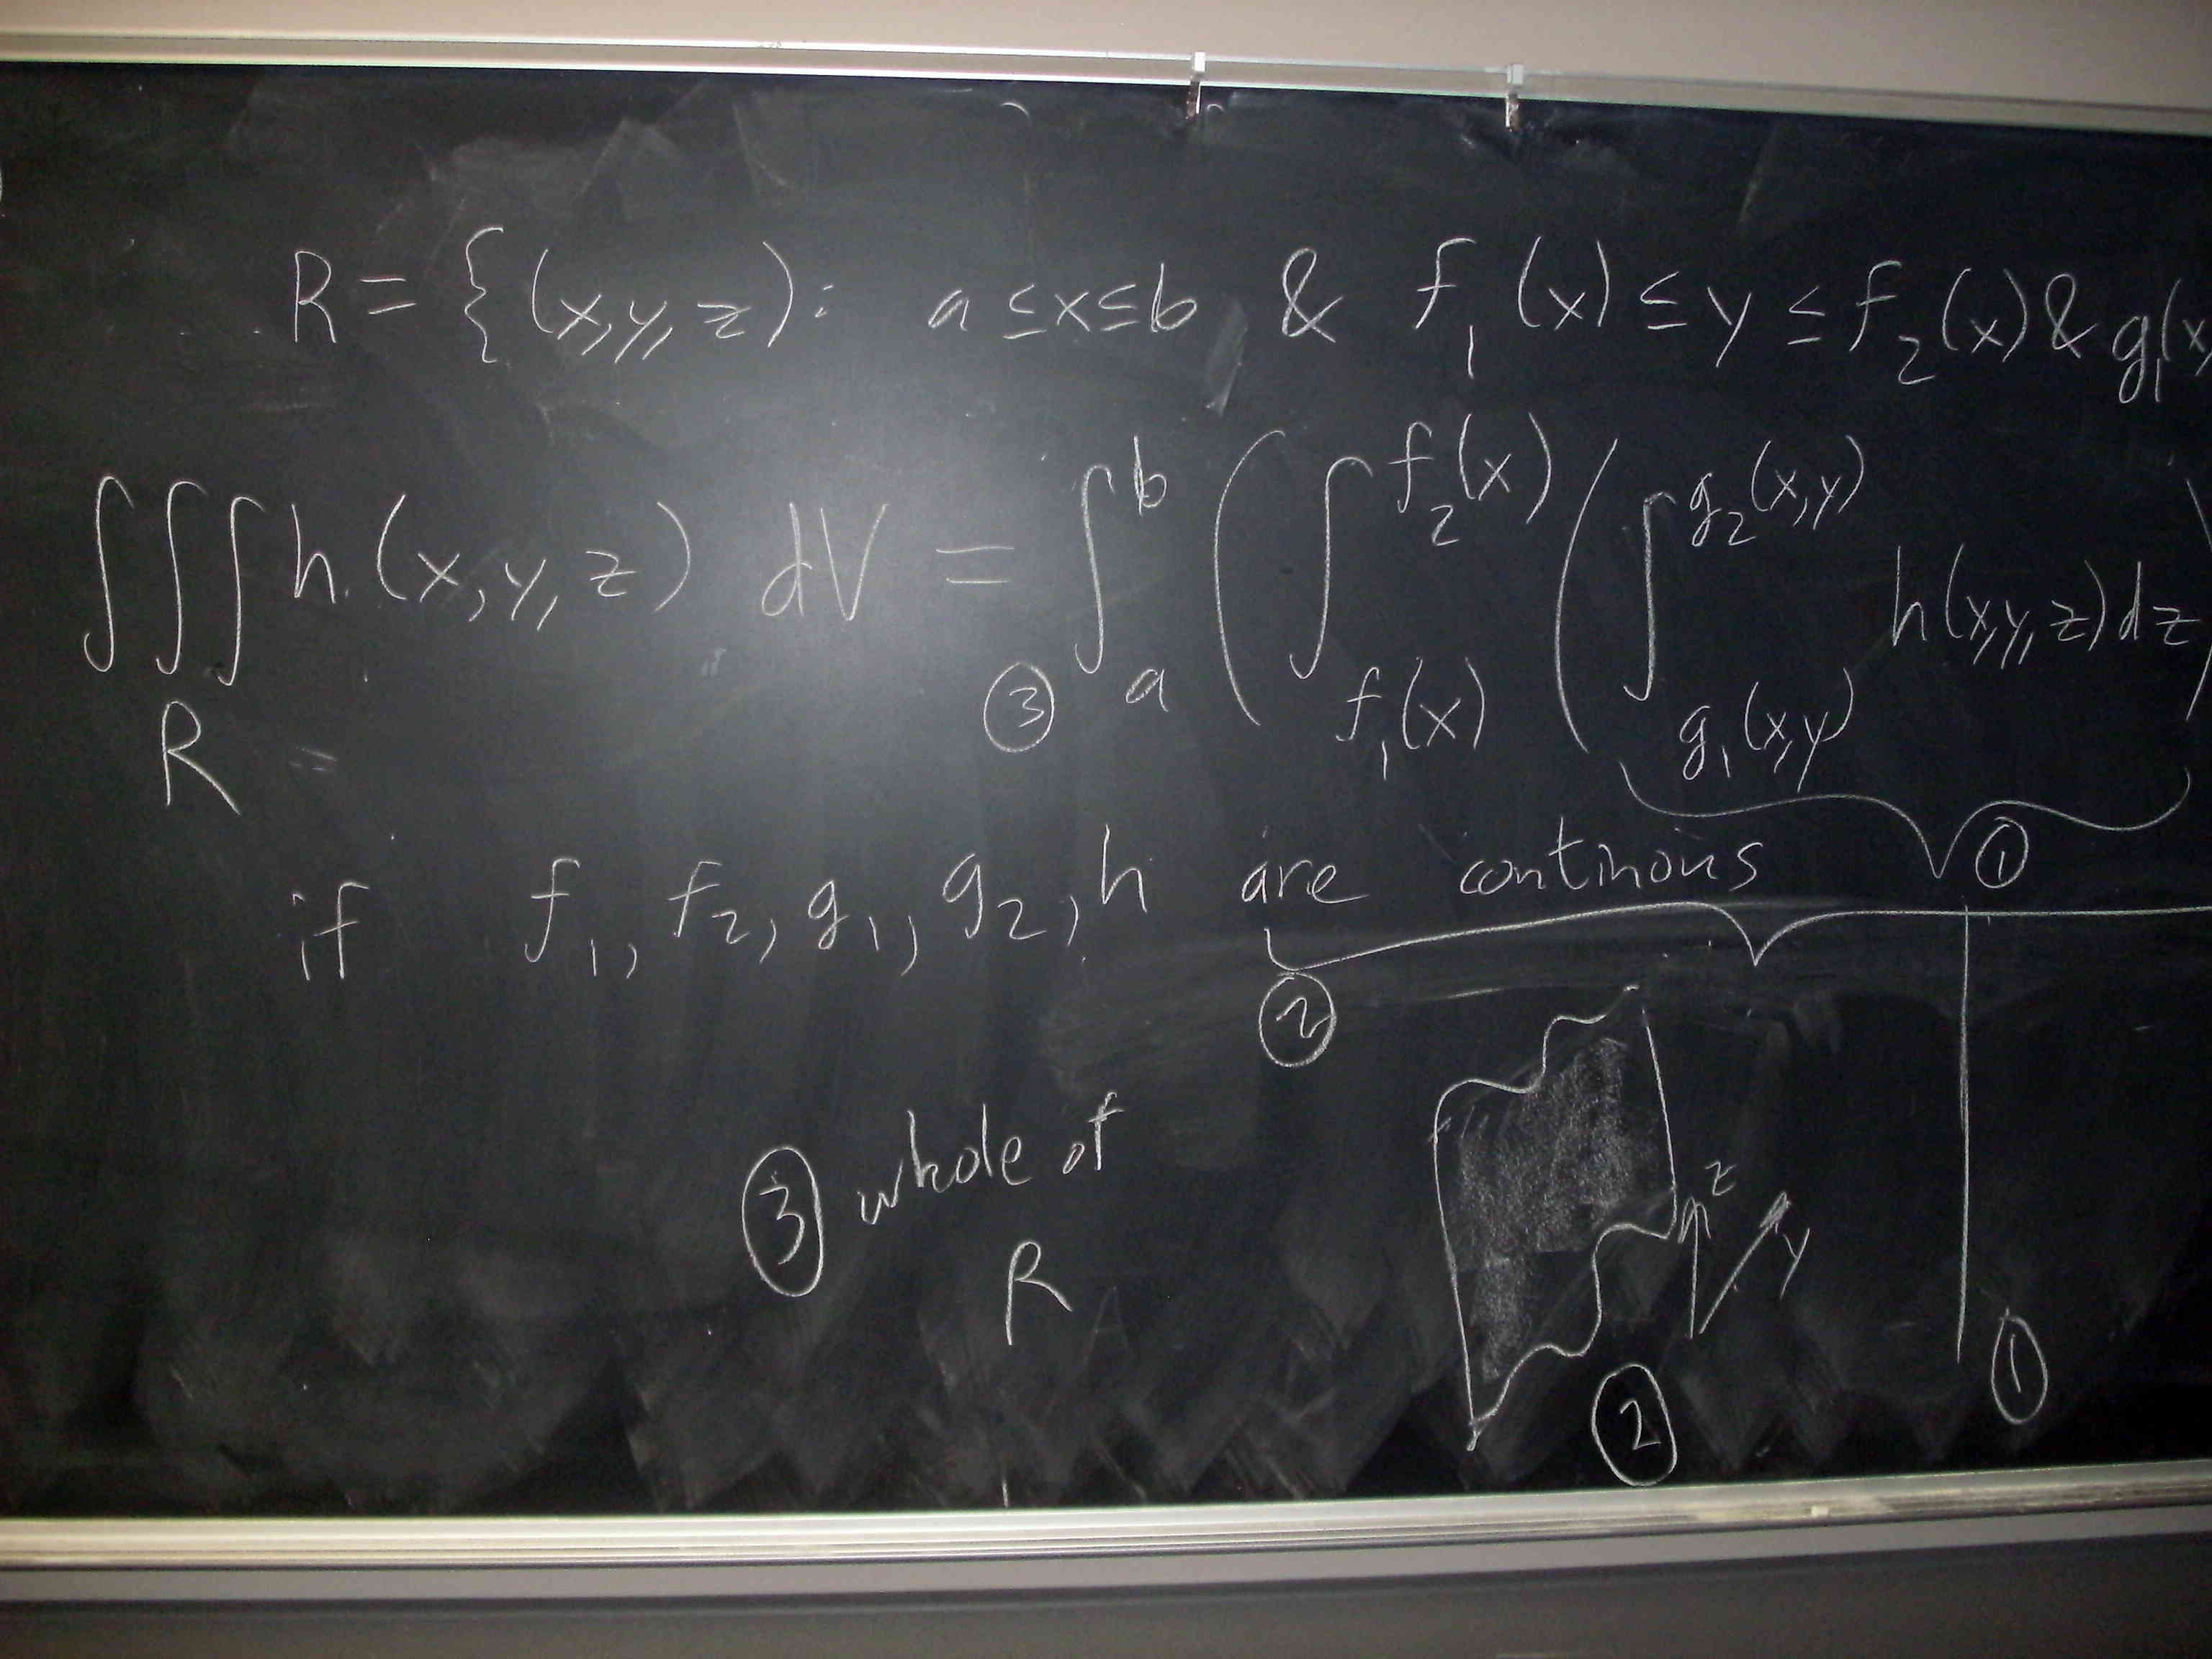 R = {(x,y,z): a ≤ x ≤ b & f₁(x) ≤ y ≤ f₂(x) & g₁(x
∫∫∫_R h(x,y,z) dV = ③ ∫_a^b ( ∫_{f₁(x)}^{f₂(x)} ( ∫_{g₁(x,y)}^{g₂(x,y)} h(x,y,z)dz )
①
if f₁, f₂, g₁, g₂, h are continous
②
③ whole of
R
z
y
②
①